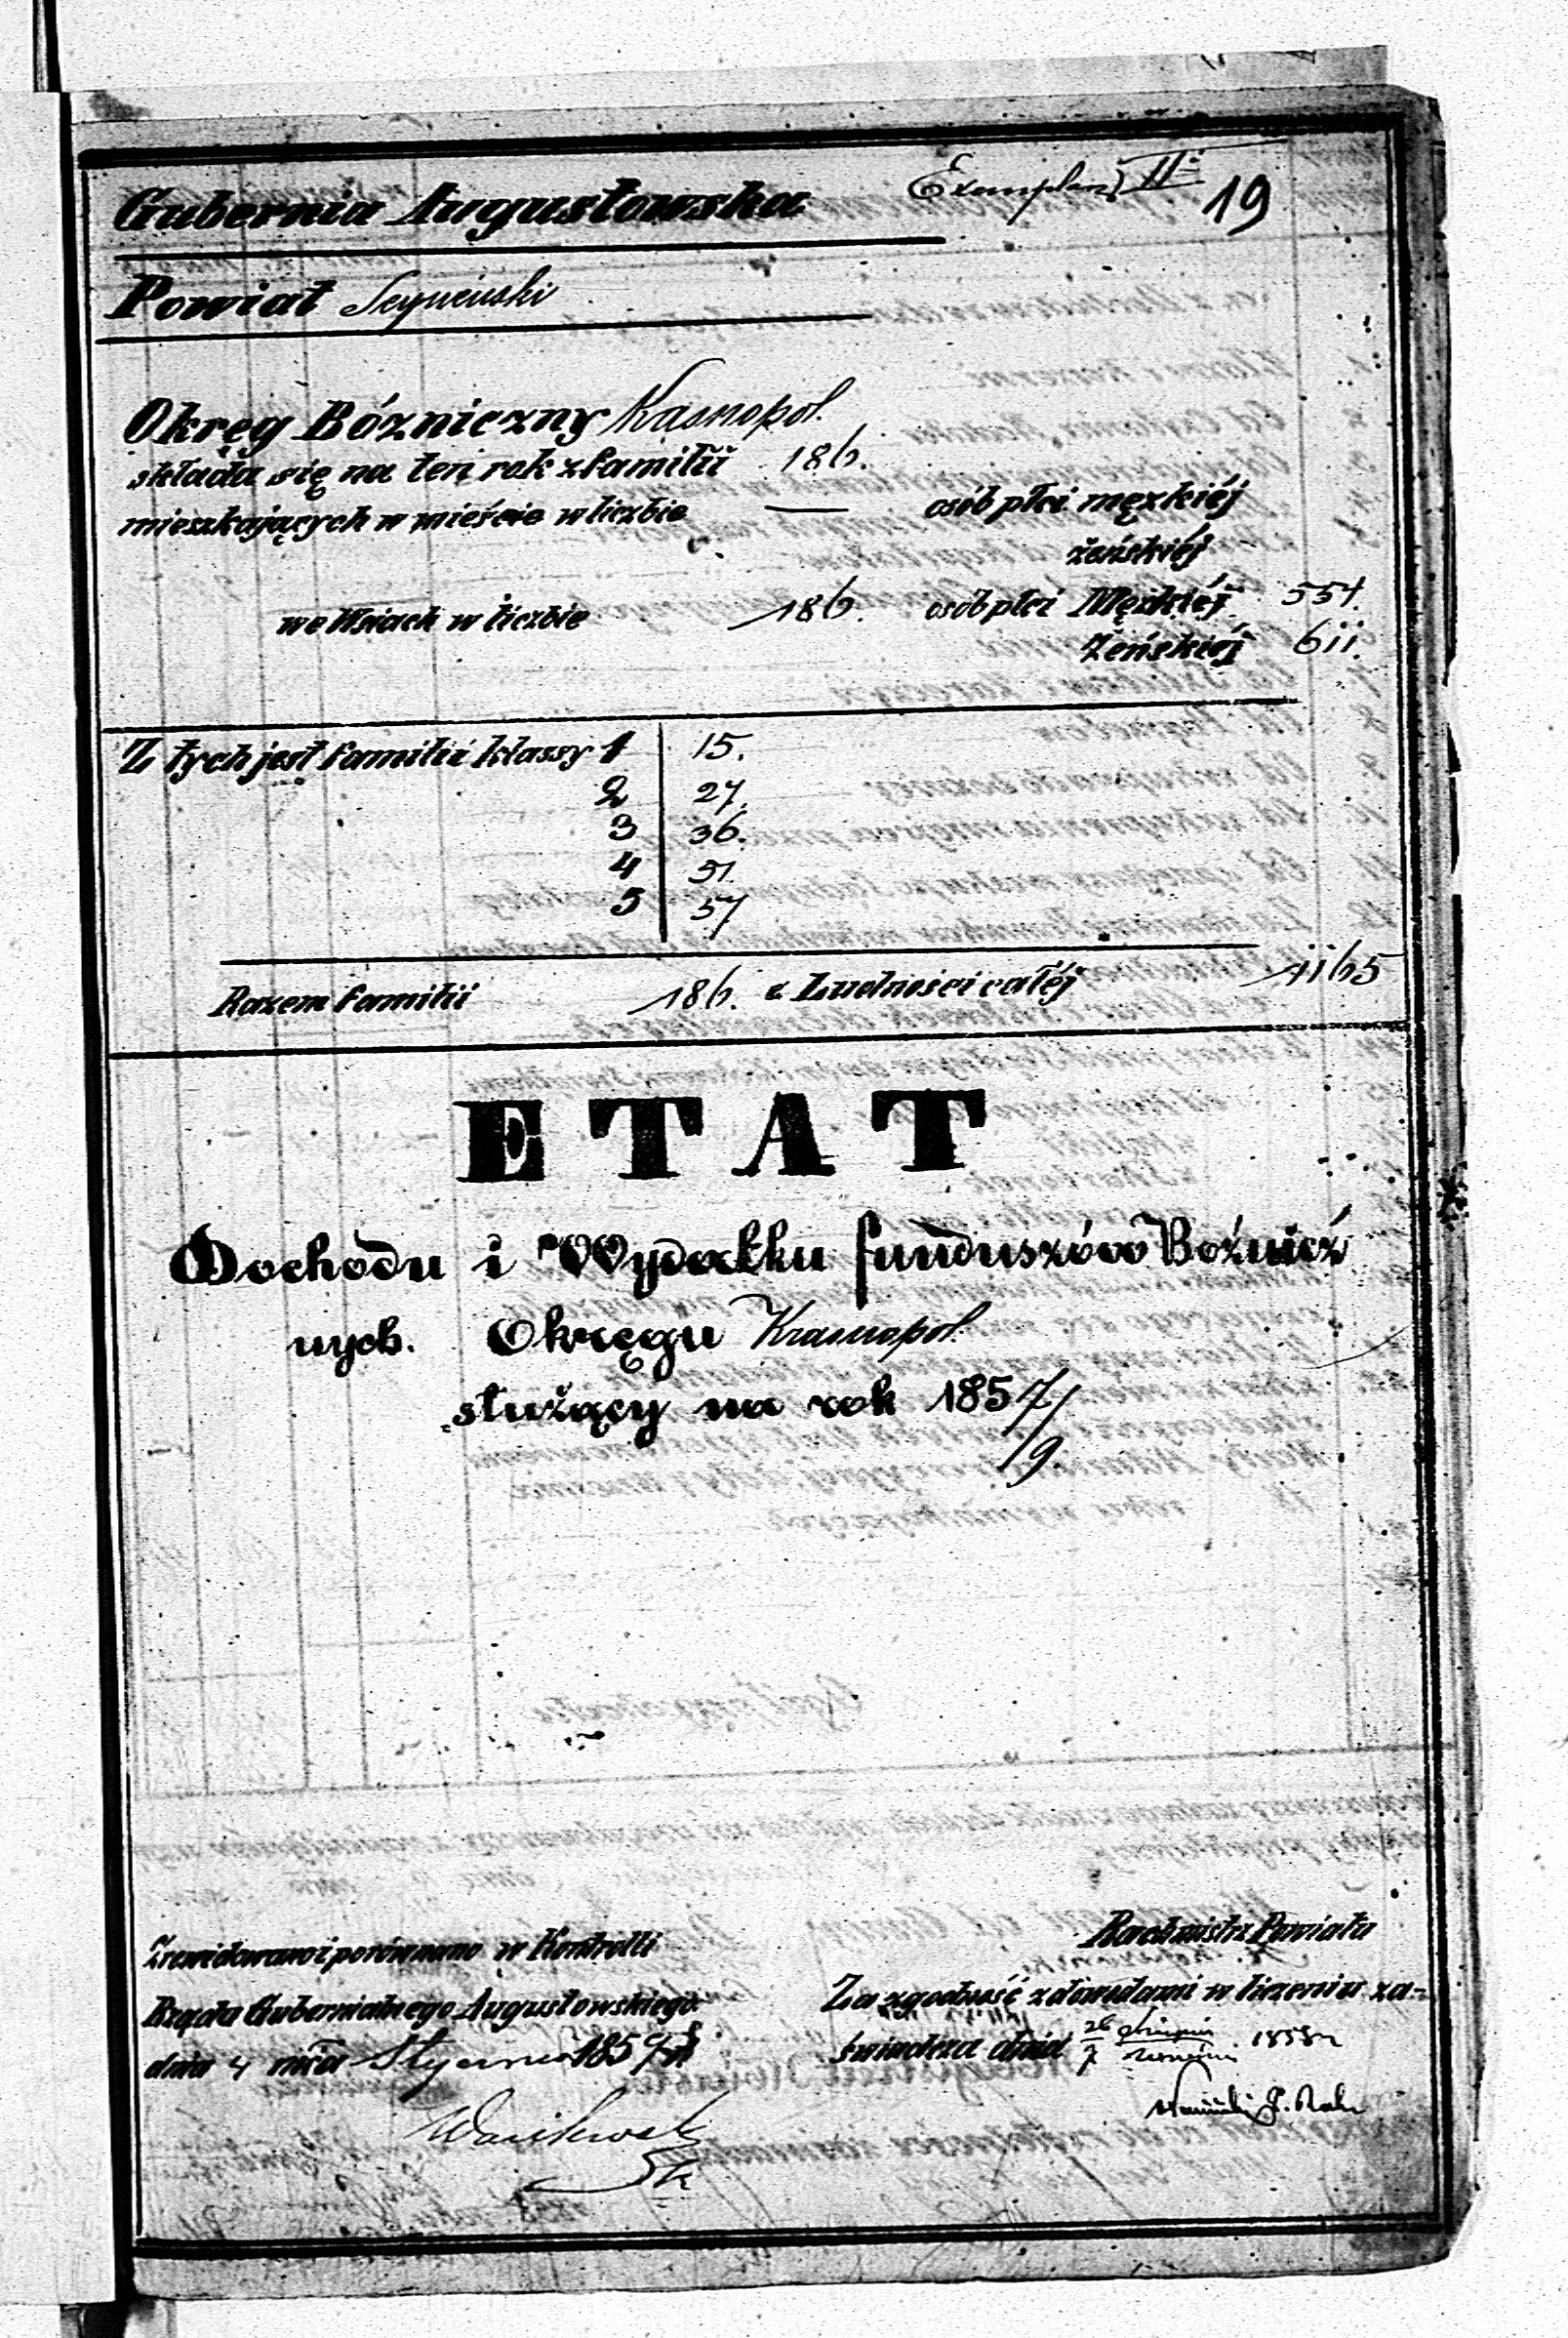 Gubernia Augustowska
Exemplarz II
19
Powiat Seyneński
Okręg Bózniczny Krasnopol.
składa się na ten rok z familii 186.
mieszkających w mieście w liczbie — osób płci męzkiéj
żeńskiéj
we Wsiach w liczbie 186. osób płci Męzkiéj 554.
Żeńskiéj 611.
Z tych jest familii klassy 1 15.
2 27.
3 36.
4 51.
5 57
Razem familii 186. a Ludności całéj 1165
ETAT
Dochodu i Wydatku funduszów Bóżnicz
nych. Okręgu Krasnopol.
służący na rok 1857/9.
Zrewidowano i porównano w Kontrolli
Rządu Gubernialnego Augustowskiego
dnia 4 mca Stycznia 185
Rachmistrz Powiatu
Za zgodność z dowodami w liczeniu za-
świadcza dnia 26 sierpnia / 7 września 1858 r